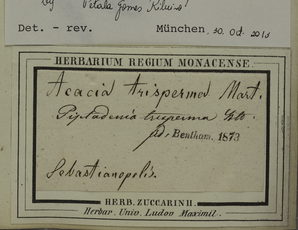 by
Det. - rev. München, 30. Oct. 2013
HERBARIUM REGIUM MONACENSE.
Acacia trisperma Mart.
Piptadenia trisperma
Bentham. 1873
Sebastianopolis.
HERB. ZUCCARINII.
Herbar. Univ. Ludov Maximil.